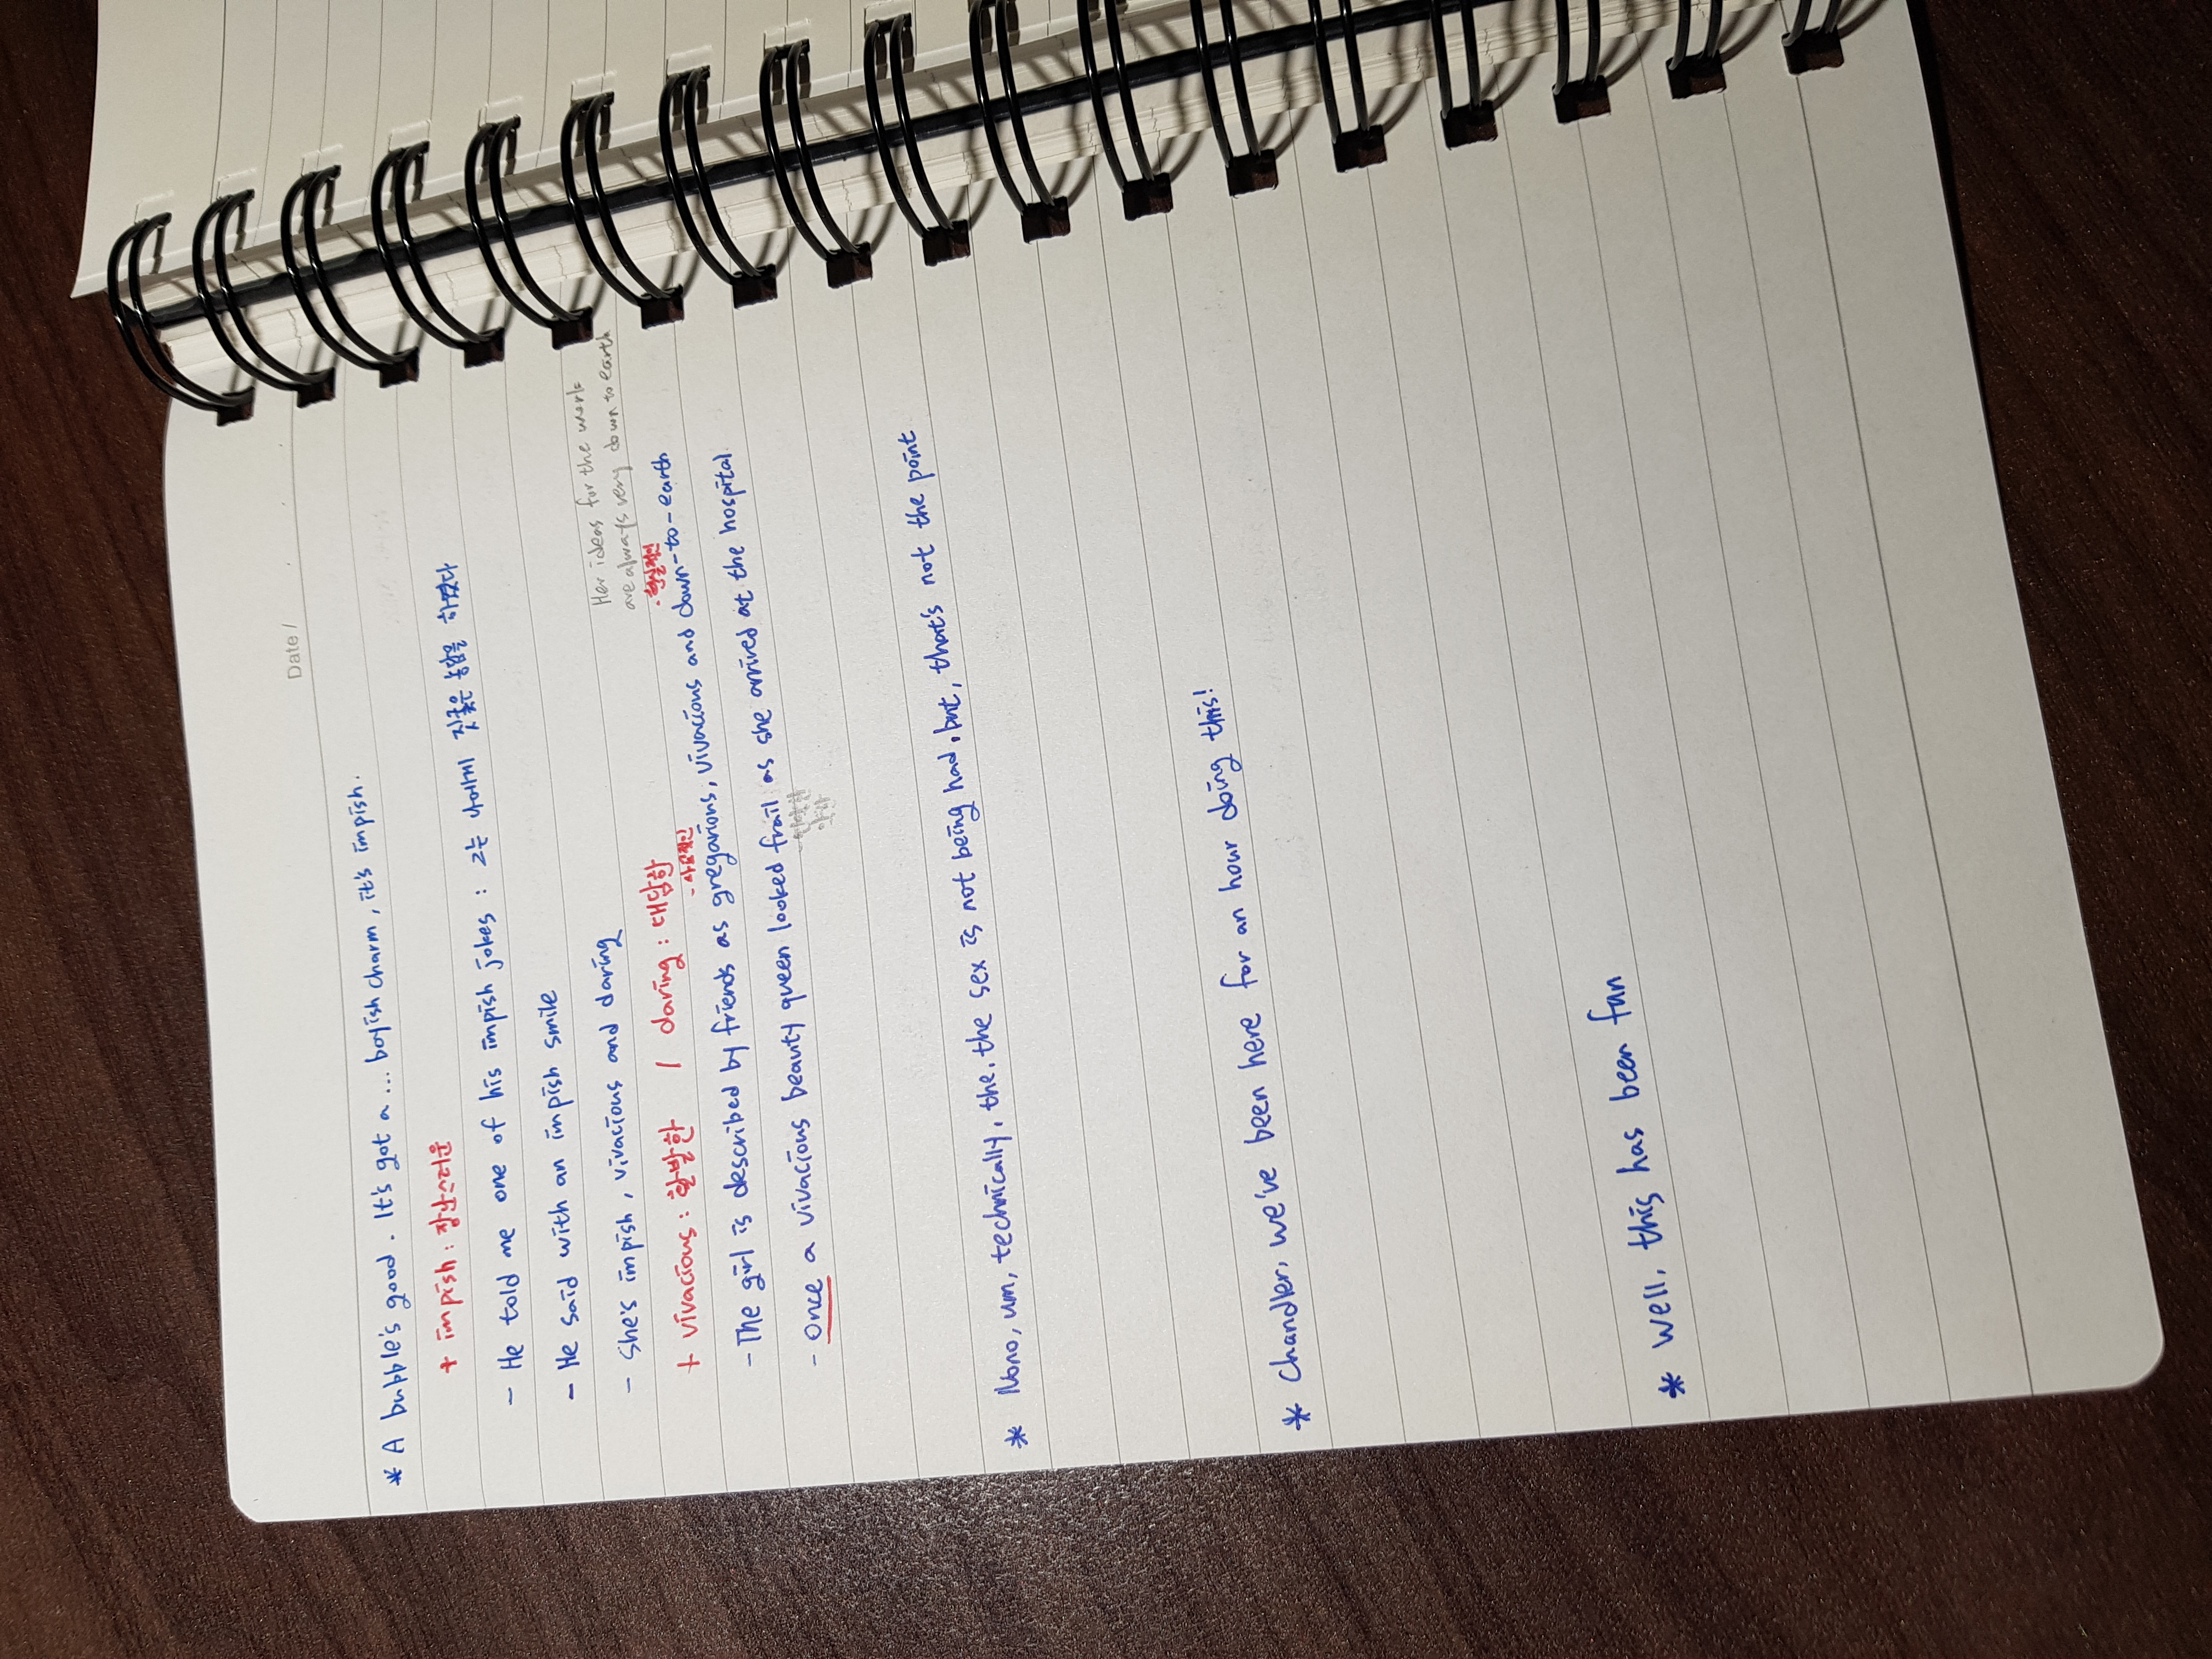 Date /
* A bubble's good. It's got a ... boyish charm, it's impish.
+ impish : 장난스러운
- He told me one of his impish jokes : 그는 나에게 짓궂은 농담을 하였다
- He said with an impish smile
- She's impish, vivacious and daring
Her ideas for the work
are always very down to earth
+ vivacious : 활발한 / daring : 대담한
- 사교적인 · 현실적인
- The girl is described by friends as gregarious, vivacious and down-to-earth
- Once a vivacious beauty queen looked frail as she arrived at the hospital.
* Nono, um, technically, the, the sex is not being had, but, that's not the point
* Chandler, we've been here for an hour doing this!
* Well, this has been fun